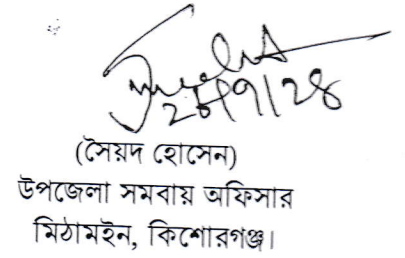 (সৈয়দ হোসেন)
উপজেলা সমবায় অফিসার
মিঠামইন, কিশোরগঞ্জ।